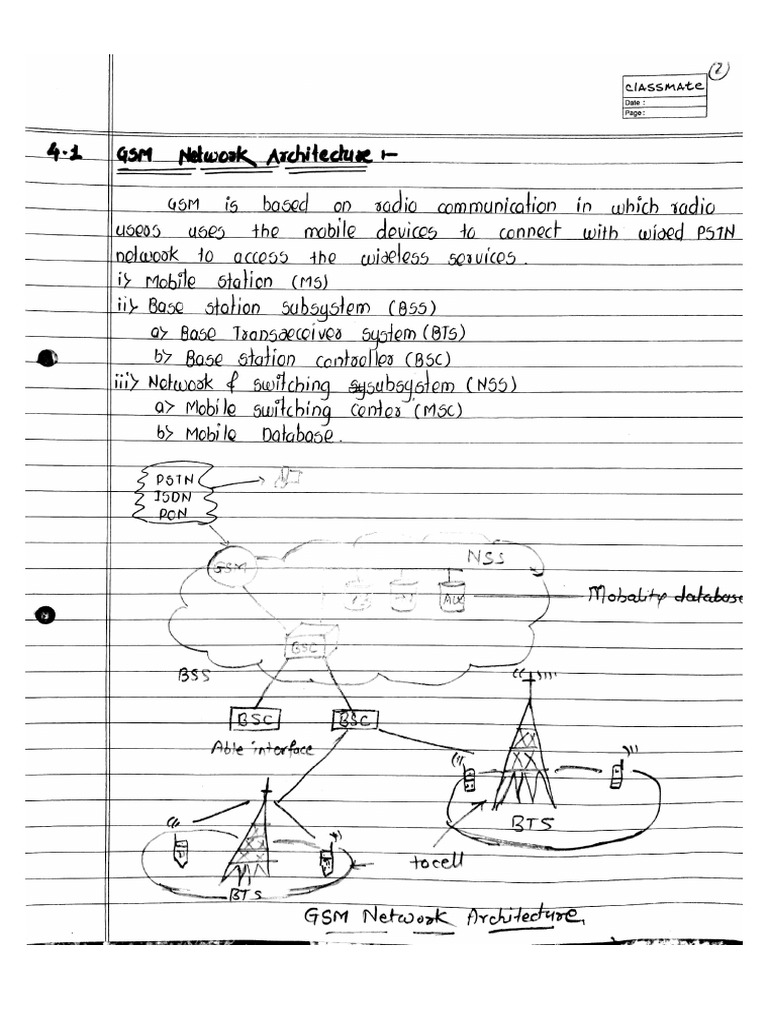 (2)
classmate
Date :
Page :
4.1 GSM Network Architecture :-
GSM is based on radio communication in which radio
users uses the mobile devices to connect with wired PSTN
network to access the wireless services.
i> Mobile station (MS)
ii> Base station subsystem (BSS)
a> Base Transreceiver system (BTS)
b> Base station controller (BSC)
iii> Network & switching sysubsystem (NSS)
a> Mobile switching center (MSC)
b> Mobile Database.
PSTN
ISDN
PDN
NSS
GSM
AUC
Mobality database
BSC
BSS
BSC BSC
Able interface
BTS
tocell
BTS
GSM Network Architecture.